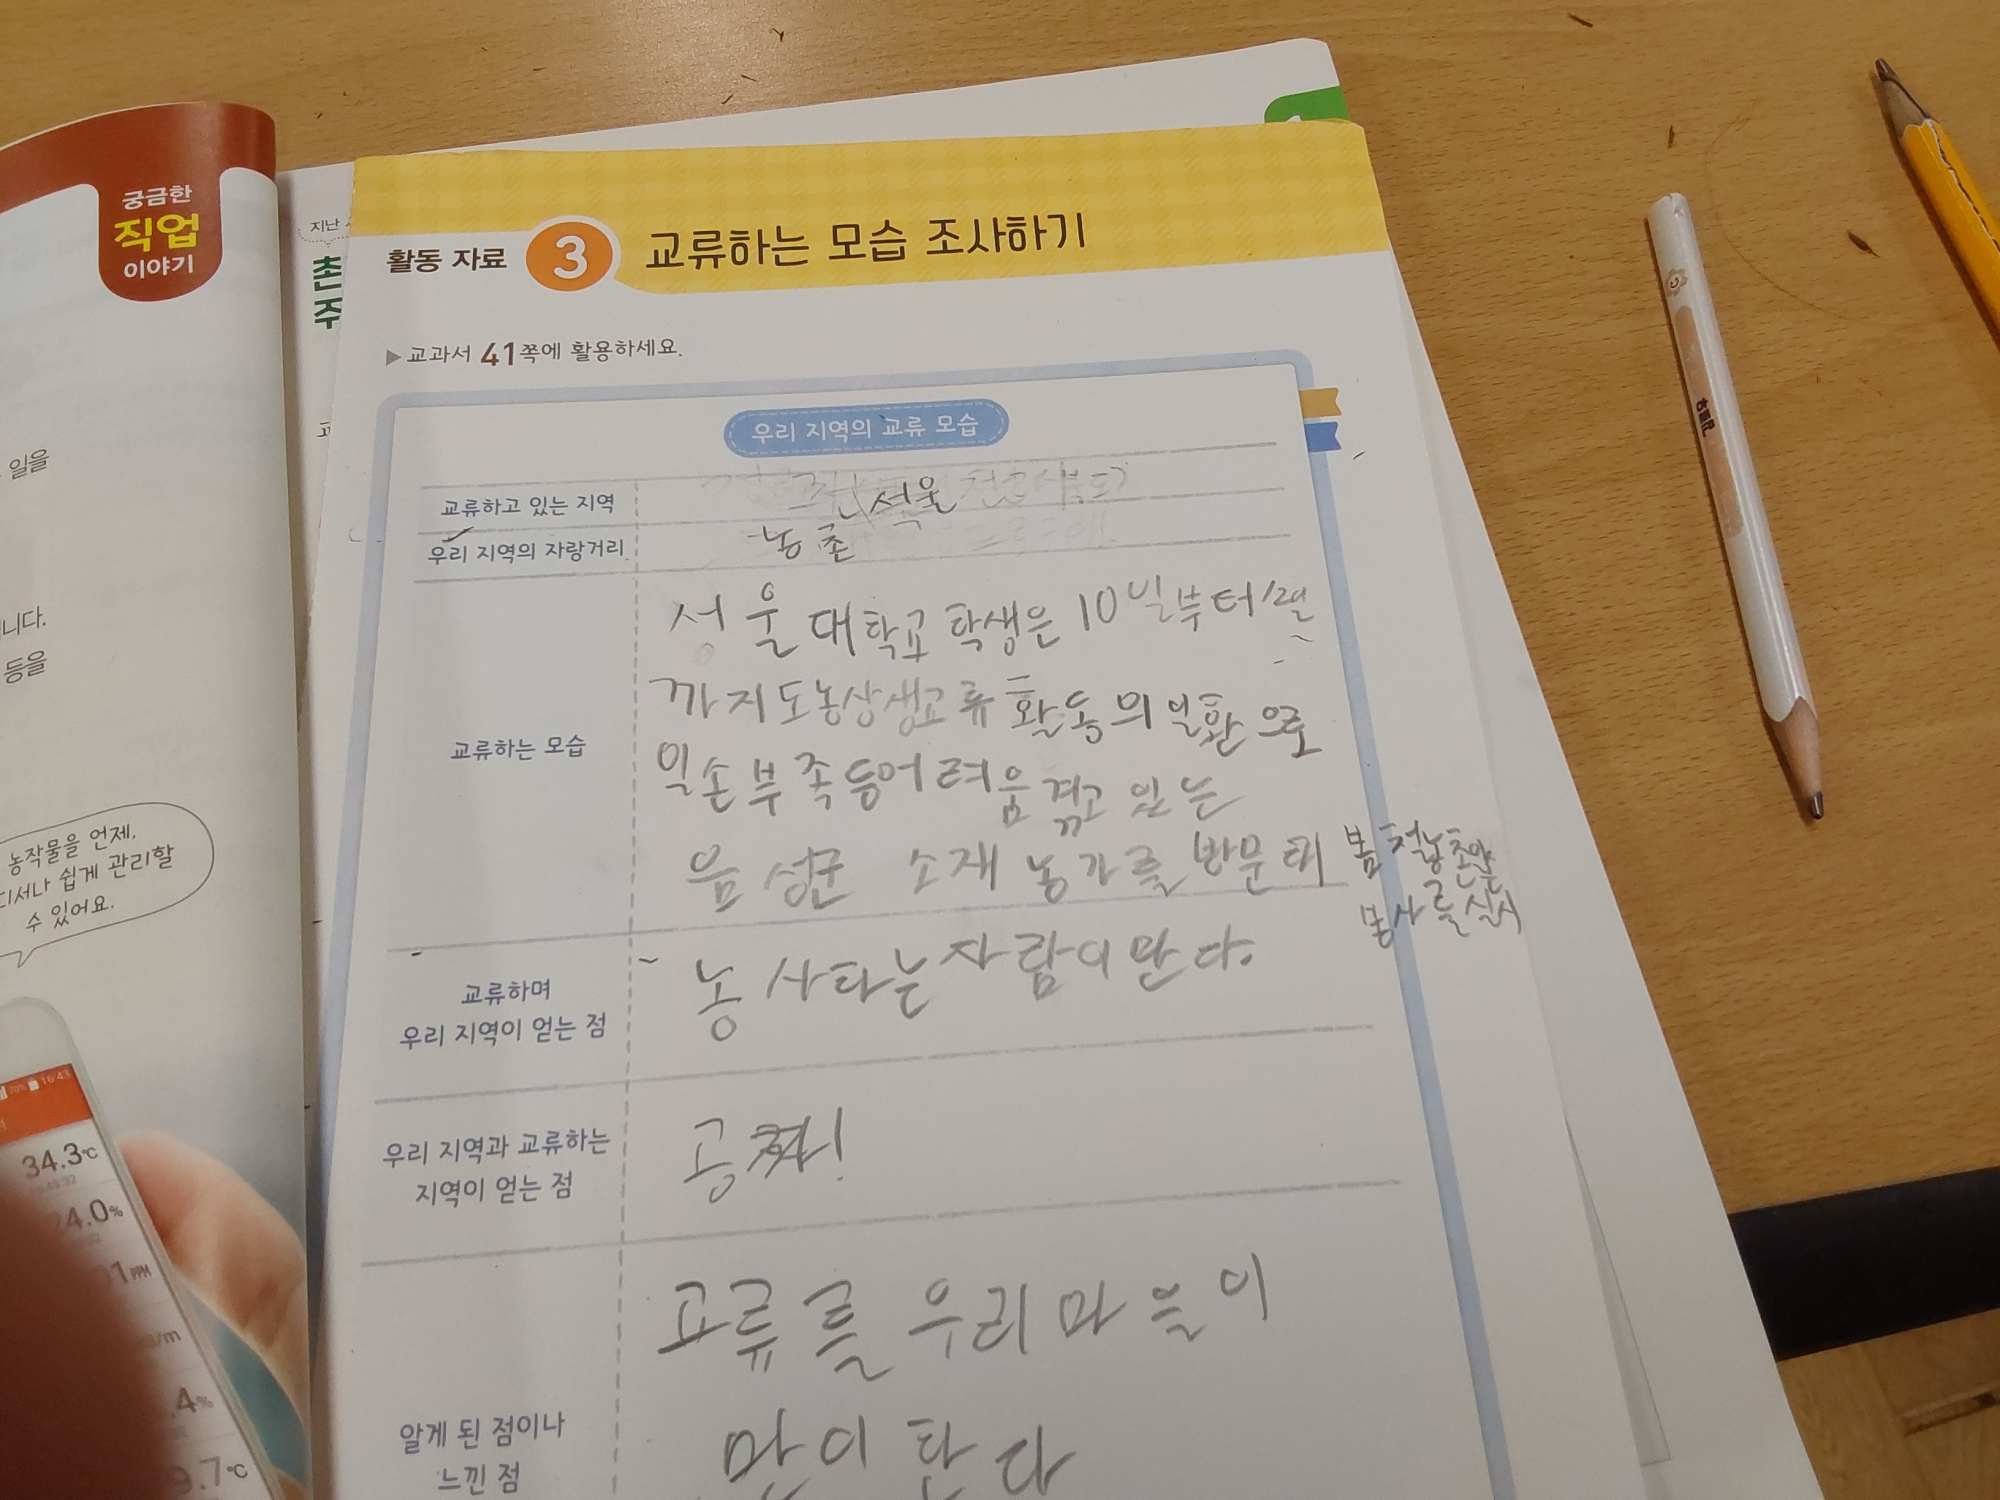 궁금한
직업
이야기
일을
니다.
등을
농작물을 언제,
디서나 쉽게 관리할
수 있어요.
16:43
34.3℃
24.0%
PPM
s/m
.4%
9.7℃
지난
촌
주
활동 자료 3 교류하는 모습 조사하기
▶교과서 41쪽에 활용하세요.
우리 지역의 교류 모습
교류하고 있는 지역 서울
우리 지역의 자랑거리 농촌
교류하는 모습
서울대학교 학생은 10일부터
까지 도농상생교류 활동의 일환으로
일손부족등어려움 겪고 있는
음성군 소재 농가를 방문해 봄철농촌
봉사를실시
교류하며
우리 지역이 얻는 점
농사하는사람이많다.
우리 지역과 교류하는
지역이 얻는 점
공짜!
알게 된 점이나
느낀 점
교류를 우리마을이
많이 한다